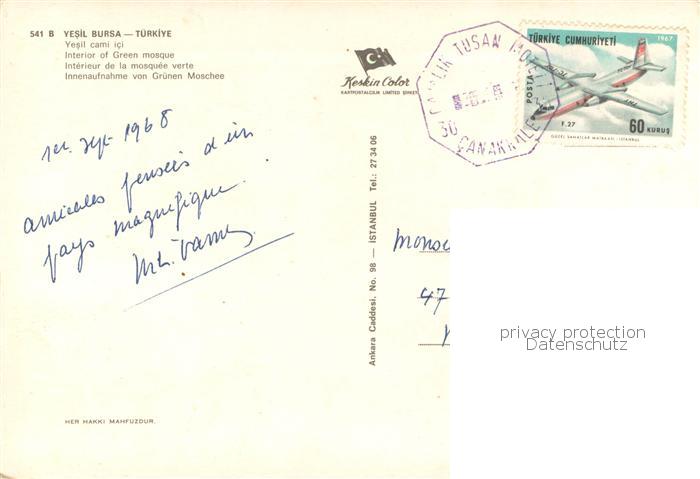 541 B YEŞİL BURSA — TÜRKİYE
Yeşil cami içi
Interior of Green mosque
Intérieur de la mosquée verte
Innenaufnahme von Grünen Moschee
Keskin Color
KARTPOSTALCILIK LIMITED ŞİRKETİ
TUSAN MOTEL
30
ÇANAKKALE
1967
TÜRKİYE CUMHURİYETİ
POSTA
F.27
60 KURUŞ
GÜZEL SANATLAR MATBAASI - İSTANBUL
1er Sept 1968
amicales pensées d'un
pays magnifique.
Ankara Caddesi. No. 98 — İSTANBUL Tel.: 27 34 06
47
privacy protection
Datenschutz
HER HAKKI MAHFUZDUR.